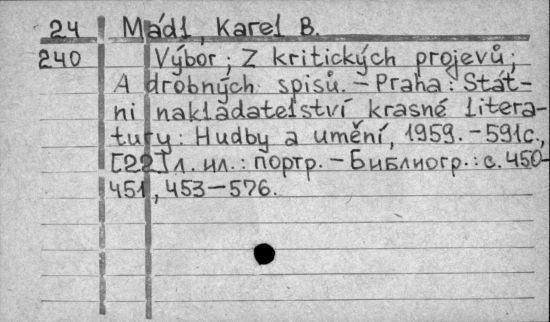 24 Mádl, Karel B.
240 Výbor; Z kritických projevů;
A drobných spisů. – Praha: Stát-
ni nakladatelství krasné litera-
tury: Hudby a umění, 1959. – 591c.,
[22] л. ил.: портр. – Библиогр.: с. 450-
451, 453–576.